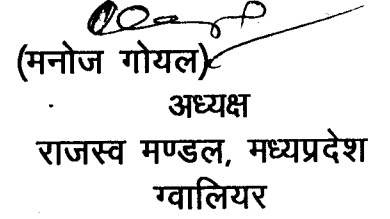 (मनोज गोयल)
अध्यक्ष
राजस्व मण्डल, मध्यप्रदेश
ग्वालियर